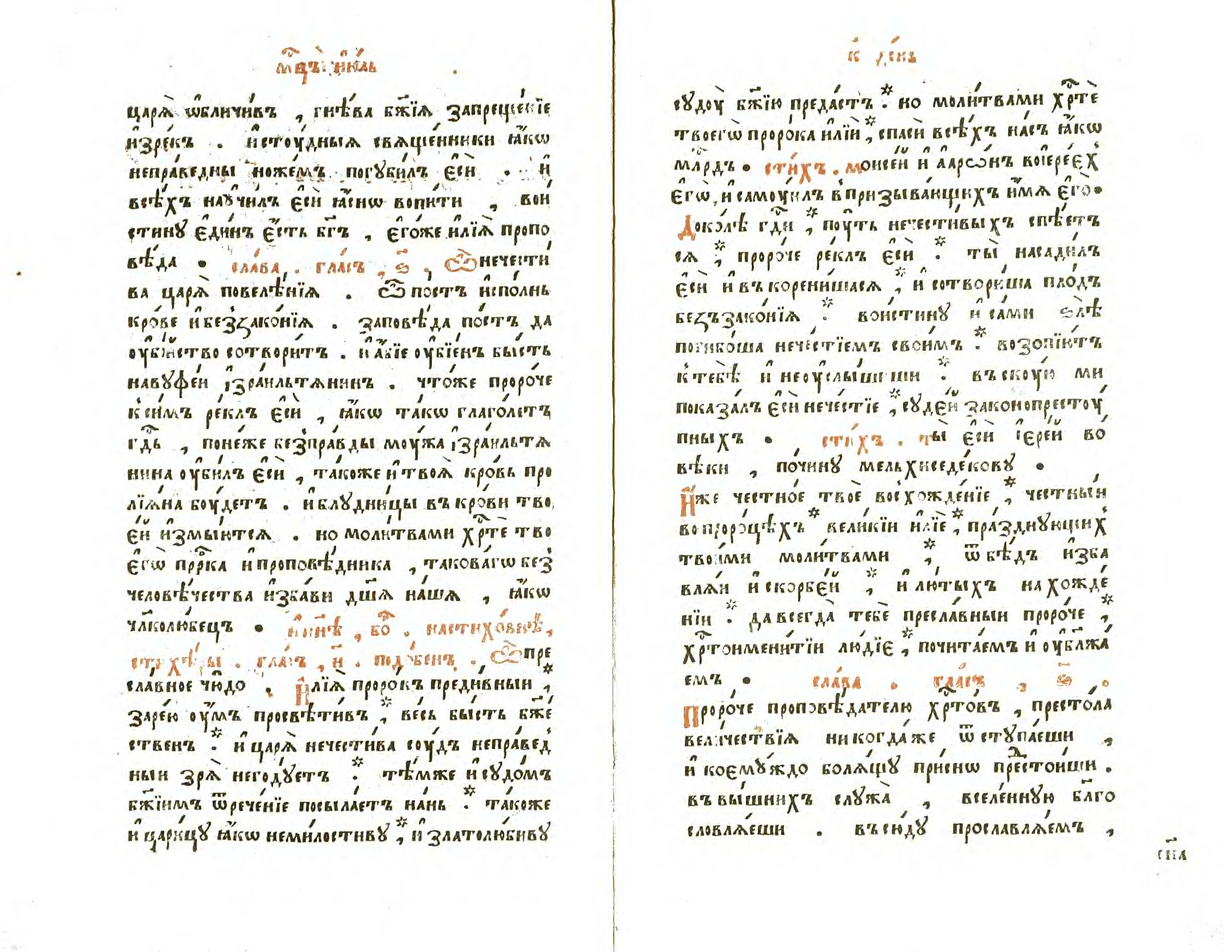 мⷭ҇цъ і҆ю́ль
царѧ̀ ѡ҆бличи́въ , гнѣ́ва бж҃їѧ запреще́нїе
и҆зре́къ . и҆стоу́дныѧ свѧще́нники ꙗ҆́кѡ
непра́ведны ноже́мъ погꙋби́лъ є҆сѝ . и҆
всѣ́хъ наꙋчи́лъ є҆сѝ ꙗ҆́снѡ вопи́ти , вои
стинꙋ є҆ди́нъ є҆́сть бг҃ъ , є҆го́же и҆лїѧ̀ пропо
вѣ́да . сла́ва , гла́съ , ѕ҃ , Ѿнечести
ва царѧ̀ повелѣ́нїѧ . Ѿ по́стъ и҆спо́лнь
кро́ве и҆беззако́нїѧ . заповѣ́да по́стъ да
ᲂу҆бі́йство сотвори́тъ . и҆а҆́бїе ᲂу҆бїе́нъ бы́сть
навꙋфе́й і҆зра́ильтѧнинъ . что́же проро́че
к си́мъ ре́клъ є҆сѝ , ꙗ҆́кѡ та́кѡ глаго́летъ
гдⷭ҇ь , поне́же без̾пра́вды моу́жа і҆зра́ильтѧ
нина ᲂу҆би́лъ є҆сѝ , та́коже и҆ твоѧ̀ кро́вь про
лїѧ́на боу́детъ . и҆блꙋдни́цы въ кро́ви тво
е́й и҆змы́ютсѧ . но моли́твами хрⷭ҇тѐ тво
є҆гѡ̀ прⷪ҇ро́ка и҆проповѣ́дника , такова́гѡ без̾
человѣ́чества и҆зба́ви дш҃а на́шѧ , ꙗ҆́кѡ
чл҃колю́бецъ . и҆ ны́нѣ , бо . настихо́внѣ ,
стихѣ́ры . гла́съ , и҃ . подо́бенъ . Ѽ пре
сла́вное чю́до . И҆лїѧ̀ проро́къ преди́вныи ,*
заре́ю ᲂу҆́мъ просвѣти́въ ,* ве́сь бы́сть бж҃е
ственъ .* и҆ царѧ̀ нечести́ва соу́дъ непра́вед
ныи зрѧ̀ негодꙋ́етъ .* тѣ́мже и҆ сꙋдо́мъ
бж҃їимъ ѿрече́нїе посыла́етъ на́нь .* та́коже
и҆ цари́цꙋ ꙗ҆́кѡ немилости́вꙋ ,* и҆ златолюби́вꙋ
к҃ де́нь
сꙋдоу̀ бж҃їю преда́стъ .* но моли́твами хрⷭ҇тѐ
твоегѡ̀ проро́ка и҆лїѝ ,* спасѝ всѣ́хъ на́съ ꙗ҆́кѡ
млⷭ҇рдъ . сти́хъ . моисе́й и҆ а҆арѡ́нъ во і҆ере́ехъ
є҆гѡ̀ , и҆ самоу́илъ в призыва́ющихъ и҆́мѧ є҆го̀ .
Доко́лѣ гдⷭ҇и ,* поу́ть нечести́выхъ спѣ́етъ
сѧ ,* проро́че ре́клъ є҆сѝ . ты̀ насади́лъ
є҆сѝ и҆ въкорени́шасѧ ,* и҆ сотвори́ша пло́дъ
беззако́нїѧ .* вои́стинꙋ и҆ са́ми ѕлѣ̀
погибо́ша нече́стїемъ свои́мъ .* возопїю́тъ
к тебѣ̀ и҆ неᲂу҆слы́шиши .* въ скоу́ю ми
показа́лъ є҆сѝ нече́стїе ,* сꙋде́й законопрестоу́
пныхъ . сти́хъ . ты̀ є҆сѝ і҆ере́й во
вѣ́ки , по чи́нꙋ мельхиседе́ковꙋ .
И҆́же честно́е твоѐ восхожде́нїе ,* честны́и
во проро́цѣхъ ,* вели́кїи и҆лїѐ ,* пра́зднꙋющихъ
твои́ми моли́твами ,* ѿ бѣ́дъ и҆зба
влѧ́й и҆ скорбе́й ,* и҆ лю́тыхъ нахожде́
нїи .* да всегда̀ тебѐ пресла́вныи проро́че ,*
хрⷭ҇тоимени́тїи лю́дїе ,* почита́емъ и҆ ᲂу҆бл҃жа́
емъ . сла́ва . гла́съ , ѕ҃ .
Проро́че проповѣ́дателю хрⷭ҇то́въ , престо́ла
вели́чествїѧ никогда́же ѿстꙋпа́еши ,
и҆ коемꙋ́ждо болѧ́щꙋ при́снѡ предстои́ши .
въ вы́шнихъ слꙋжа̀ , вселе́ннꙋю бл҃го
словлѧ́еши . всю́дꙋ прославлѧ́емъ ,
сн҃а